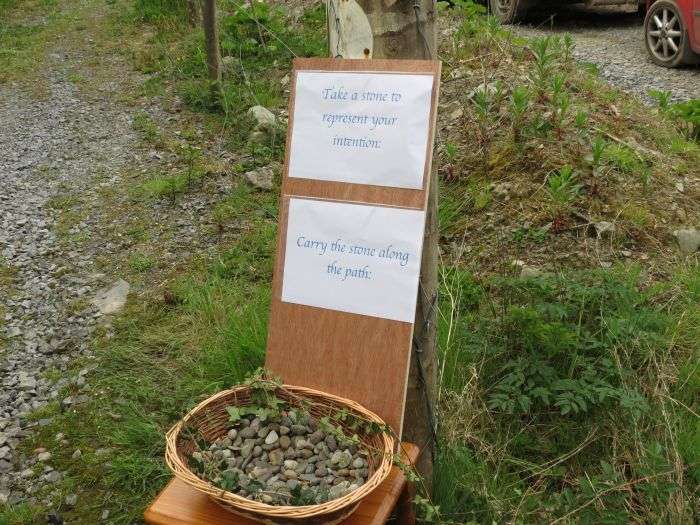 Take a stone to
represent your
intention:
Carry the stone along
the path: